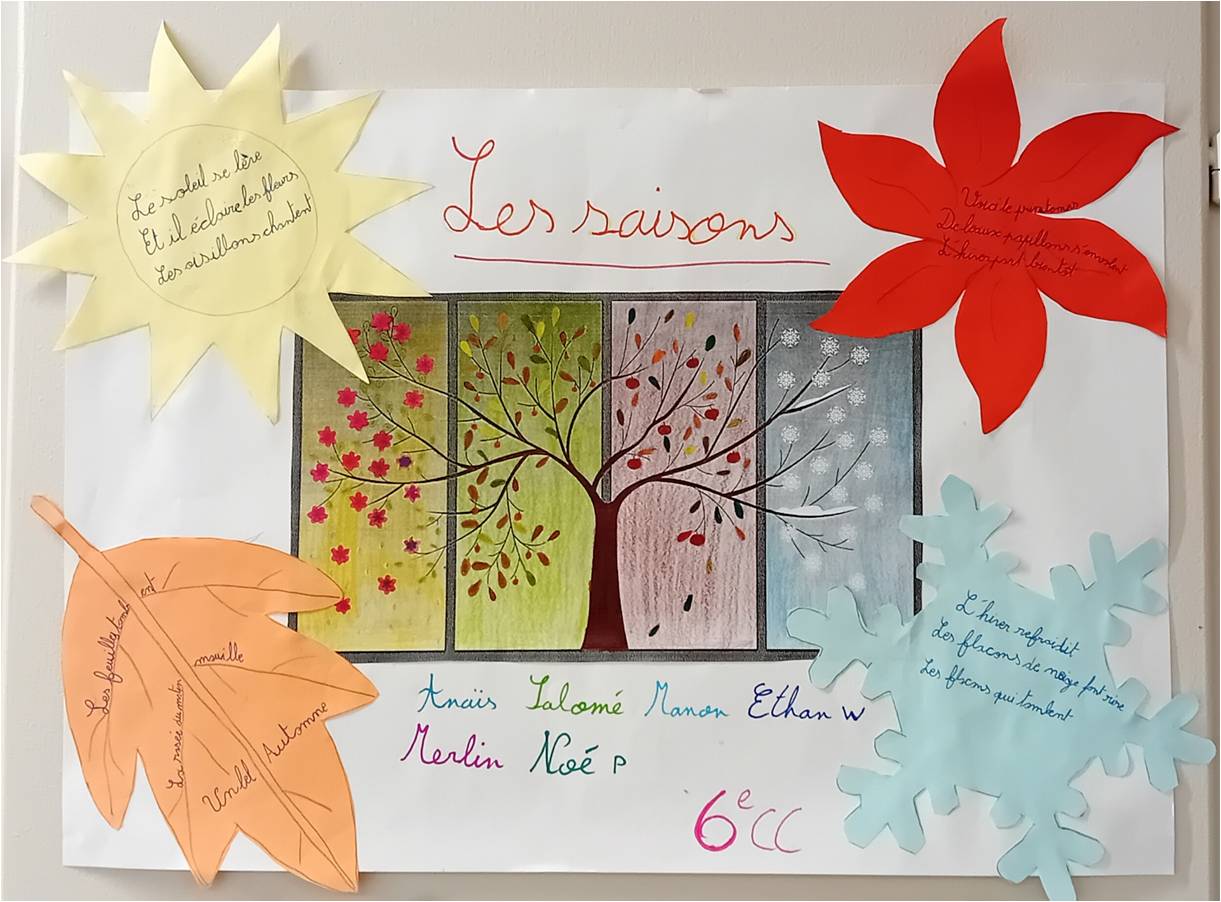 Les saisons
Le soleil se lève
Et il éclaire les fleurs
Les oisillons chantent
Voici le printemps
De doux papillons s'envolent
L'hiver part bientôt
Les feuilles tombent
La rosée du matin mouille
Un bel Automne
L'hiver refroidit
Les flacons de neige font rire
Les flacons qui tombent
Anaïs Salomé Manon Ethan W
Merlin Noé P
6e CC